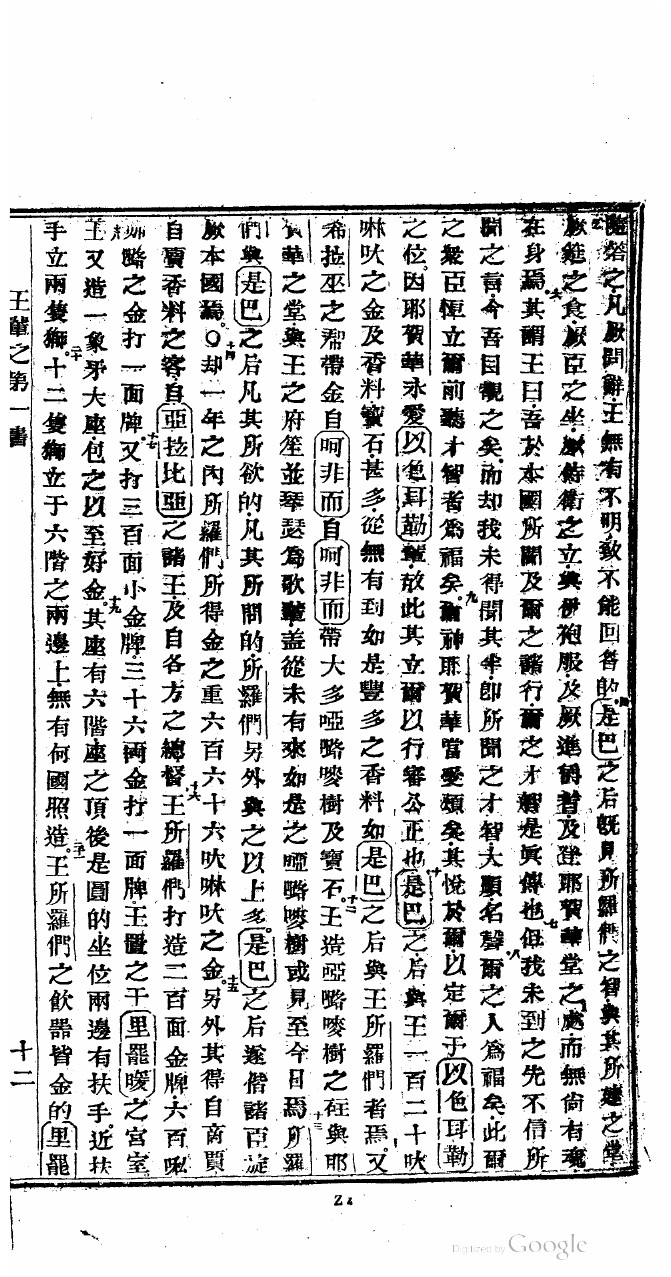 隨答之凡厥問辭王無有不明致不能回答的四是巴之后既見所羅們之智與其所建之堂
五厥筵之食厥臣之坐厥侍衛之立與伊袍服及厥進觴者及登耶賀華堂之處而無尚有魂
在身焉六其謂王曰吾於本國所聞及爾之諸行爾之才智是眞傳也七但我未到之先不信所
聞之言今吾目觀之矣而却我未得聞其半即所聞之才智大顯名聲八爾之人爲福矣此爾
之衆臣恆立爾前聽才智者爲福矣九爾神耶賀華當受頌矣其悅於爾以定爾于以色耳勒
之位因耶賀華永愛以色耳勒輩故此其立爾以行審公正也十是巴之后與王一百二十吠
啉吠之金及香料寶石甚多從無有到如是豐多之香料如是巴之后與王所羅們者焉又
希拉巫之幫帶金自呵非而自呵非而帶大多啞路嘜樹及寶石十二王造啞路嘜樹之柱與耶
賀華之堂與王之府笙並琴瑟爲歌輩盖從未有來如是之啞路嘜樹或見至今日焉十三所羅
們與是巴之后凡其所欲的凡其所問的所羅們另外與之以上多是巴之后遂偕諸臣旋
厥本國焉〇十四却一年之內所羅們所得金之重六百六十六吠啉吠之金十五另外其得自商賈
自賣香料之客自亞拉比亞之諸王及自各方之總督十六王所羅們打造二百面金牌六百
之金打一面牌十七又打三百面小金牌三十六兩金打一面牌王置之于里罷暖之宮室
王又造一象牙大座包之以至好金十九其座有六階座之頂後是圓的坐位兩邊有扶手近扶
手立兩隻獅二十十二隻獅立于六階之兩邊上無有何國照造二十一王所羅們之飲器皆金的里罷
王輩之第一書
十二
Digitized by Google